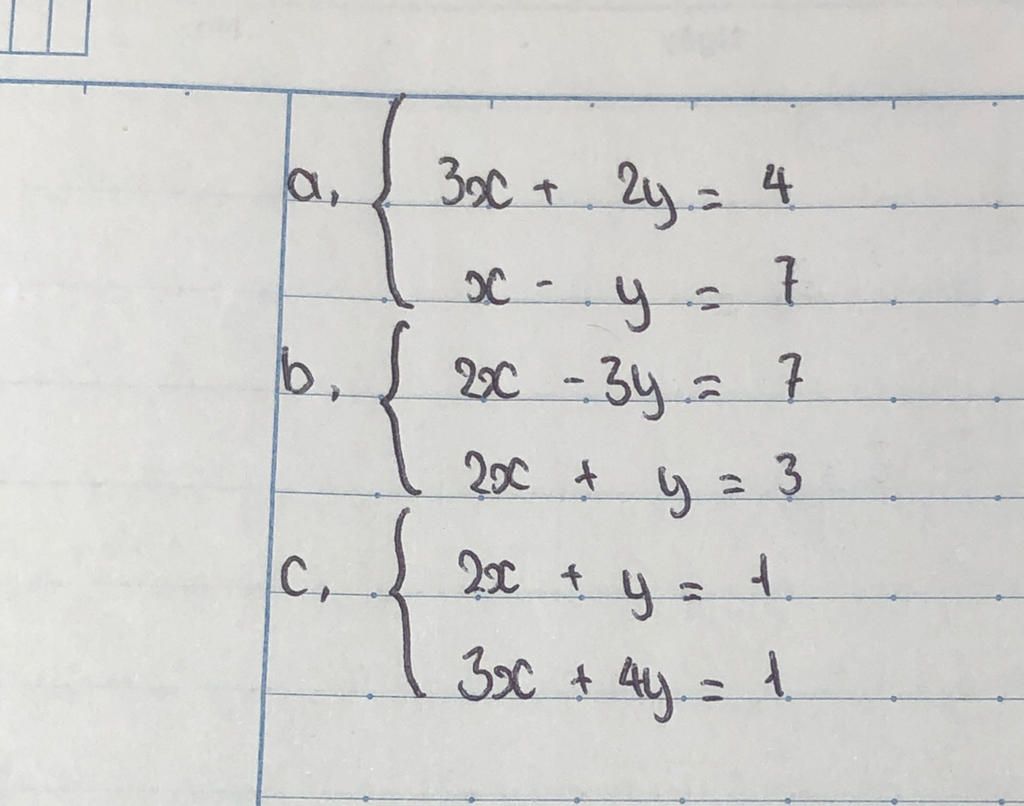 a, { 3x + 2y = 4
x - y = 7
b, { 2x - 3y = 7
2x + y = 3
c, { 2x + y = 1
3x + 4y = 1